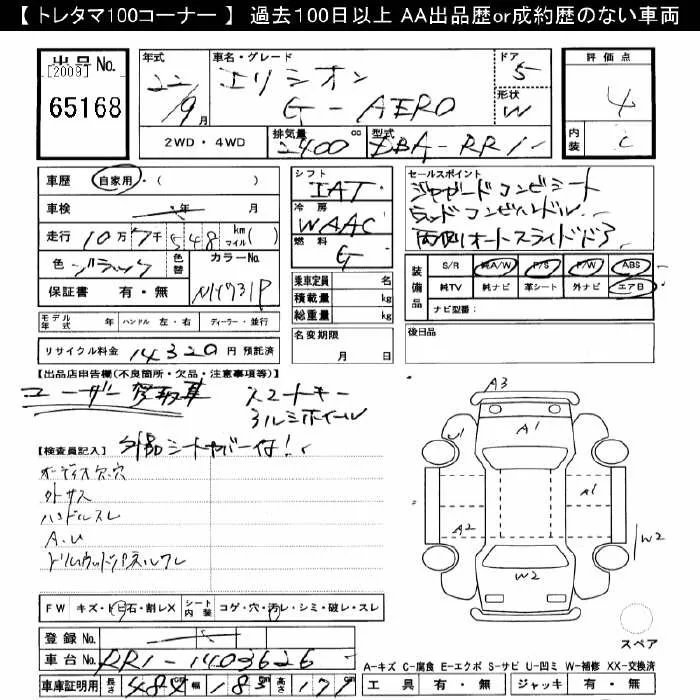 【 トレタマ100コーナー 】 過去100日以上 AA出品歴or成約歴のない車両
出品No.
[2009]
65168
年式
22
9月
車名・グレード
エリシオン
G-AERO
ドア
5
形状
W
評価点
4
内装
C
2WD・4WD
排気量
2400cc
型式
DBA-RR1
車歴 自家用・( )
車検 年 月
走行 10万7千548 km マイル( )
色 ブラック 色替 カラーNo.
NH731P
保証書 有・無
シフト
IAT
冷房
WAAC
燃料
G
乗車定員 名
積載量 kg
総重量 kg
名変期限
月 日
セールスポイント
ジャガードコンビシート
ウッドコンビハンドル
両側オートスライドドア
装備品
S/R 純A/W P/S P/W ABS
純TV 純ナビ 革シート 外ナビ エアB
ナビ型番:
後日品
モデル年式 年 ハンドル 左・右 ディーラー・並行
リサイクル料金 14320 円 預託済
【出品店申告欄(不良箇所・欠品・注意事項等)】
ユーザー買取車
スマートキー
アルミホイール
外品シートカバー付!
【検査員記入】
オーディオ欠、穴
外サス
ハンドルスレ
A.U
ドリムウッドパネルワレ
FW キズ・ヒ石・割レX シート内装 コゲ・穴・汚レ・シミ・破レ・スレ
登録No.
車台No. RR1-1403626
車庫証明用 長さ 484cm 幅 183cm 高さ 179cm
A3
U1
A1
A1
A2
W2
W2
スペア
A-キズ C-腐食 E-エクボ S-サビ U-凹ミ W-補修 XX-交換済
工具 有・無 ジャッキ 有・無